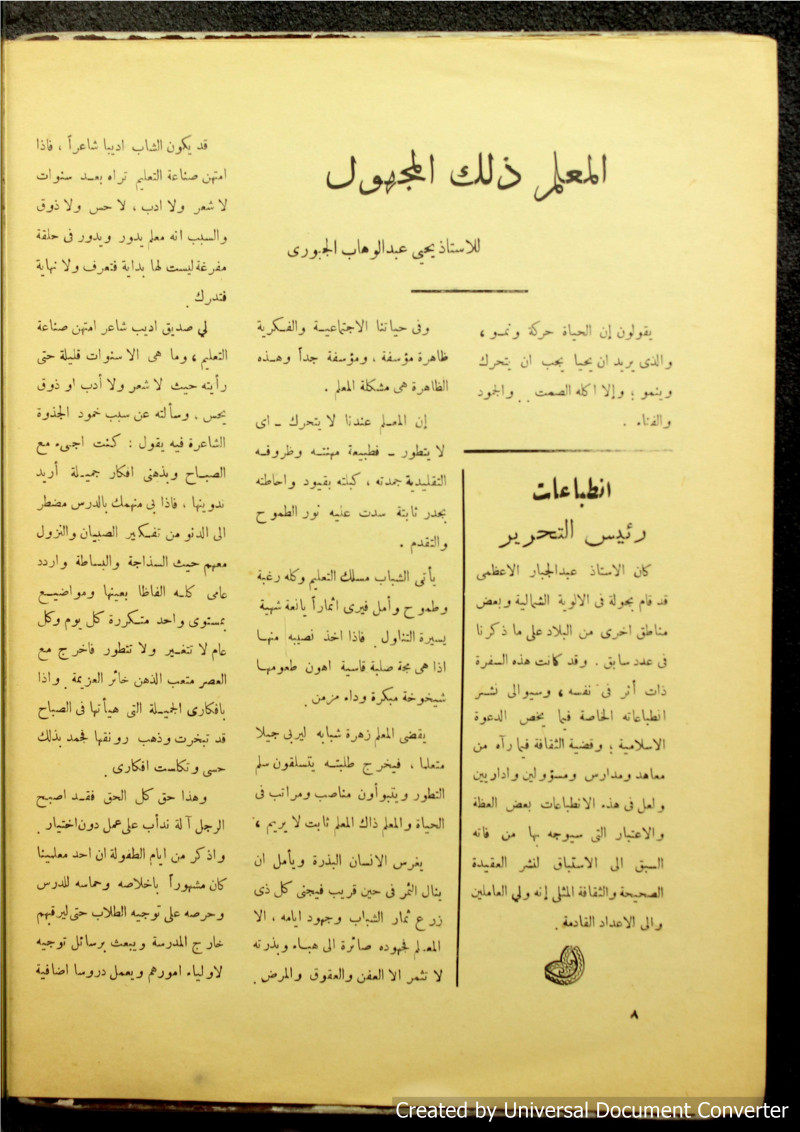 المعلم ذلك المجهول
للاستاذ يحيى عبدالوهاب الجبورى
يقولون إن الحياة حركة ونمـو ،
والذى يريد ان يحيا يجب ان يتحرك
وينمو ؛ وإلا اكله الصمت . والجمود
والفناء .
انطباعات
رئيس التحرير
كان الاستاذ عبدالجبار الاعظمى
قد قام بجولة فى الالوية الشمالية وبعض
مناطق اخرى من البلاد على ما ذكرنا
فى عدد سابق . وقد كانت هذه السفرة
ذات أثر فى نفسه ، وسيوالى نشـر
انطباعاته الخاصة فيما يخص الدعوة
الاسلامية ؛ وقضية الثقافة فيما رآه من
معاهد ومدارس ومسؤولين واداريين
ولعل فى هذه الانطباعات بعض العظة
والاعتبار التى سيوجه بها من فاته
السبق الى الاستباق لنشر العقيدة
الصحيحة والثقافة المثلى إنه ولي العاملين
والى الاعداد القادمة .
وفى حياتنا الاجتماعيـة والفـكرية
ظاهرة مؤسفة ، ومؤسفة جداً وهـذه
الظاهرة هى مشكلة المعلم .
إن المعـلم عندنا لا يتحرك ـ اى
لا يتطور ـ فطبيعة مهنتـه وظروفـه
التقليدية جمدته ، كبلته بقيود واحاطته
بجدر ثابتة سدت عليه نور الطموح
والتقدم .
يأتى الشباب مسلك التعليم وكله رغبة
وطموح وأمل فيرى اثماراً يانعة شهية
يسيرة التناول . فاذا اخذ نصيبه منهـا
اذا هى مجة صلبة قاسية اهون طعومهـا
شيخوخة مبكرة وداء مزمن .
يقضى المعلم زهرة شبابه ليربى جيلا
متعلما ، فيخرج طلبتـه يتسلقون سلم
التطور ويتبوأون مناصب ومراتب فى
الحياة والمعلم ذاك المعلم ثابت لا يريم ،
يغرس الانسان البذرة ويأمل ان
ينال الثمر فى حين قريب فيجنى كل ذى
زرع ثمار الشباب وجهود ايامه ، الا
المعـلم فجهوده صائرة الى هبـاء وبذرته
لا تثمر الا العفن والعقوق والمرض .
قد يكون الشاب اديبا شاعراً ، فاذا
امتهن صناعة التعليم تراه بعـد سنوات
لا شعر ولا ادب ، لا حس ولا ذوق
والسبب انه معلم يدور ويدور فى حلقة
مفرغة ليست لها بداية فتعرف ولا نهاية
فتدرك .
لي صديق اديب شاعر امتهن صناعة
التعليم ، وما هى الا سنوات قليلة حتى
رأيته حيث لا شعر ولا أدب او ذوق
يحس . وسألته عن سبب خمود الجذوة
الشاعرة فيه يقول : كنت اجىء مع
الصبـاح وبذهنى افكار جميـلة أريد
تدوينها ، فاذا بى منهمك بالدرس مضطر
الى الدنو من تفـكير الصبيان والنزول
معهم حيث السذاجة والبساطة واردد
عامى كلـه الفاظا بعينها ومواضيـع
بمستوى واحد متـكررة كل يوم وكل
عام لا تتغـير ولا تتطور فاخرج مع
العصر متعب الذهن خائر العزيمة . واذا
بافكارى الجميـلة التى هيأتها فى الصباح
قد تبخرت وذهب رونقها فجمد بذلك
حسى وتكاست افكارى .
وهذا حق كل الحق فقـد اصبح
الرجل آلة تدأب على عمل دون اختيار .
واذكر من ايام الطفولة ان احد معلمينا
كان مشهوراً باخلاصه وحماسه للدرس
وحرصه على توجيه الطلاب حتى ليرقبهم
خارج المدرسة ويبعث برسائل توجيه
لاولياء امورهم ويعمل دروسا اضافية
٨
Created by Universal Document Converter